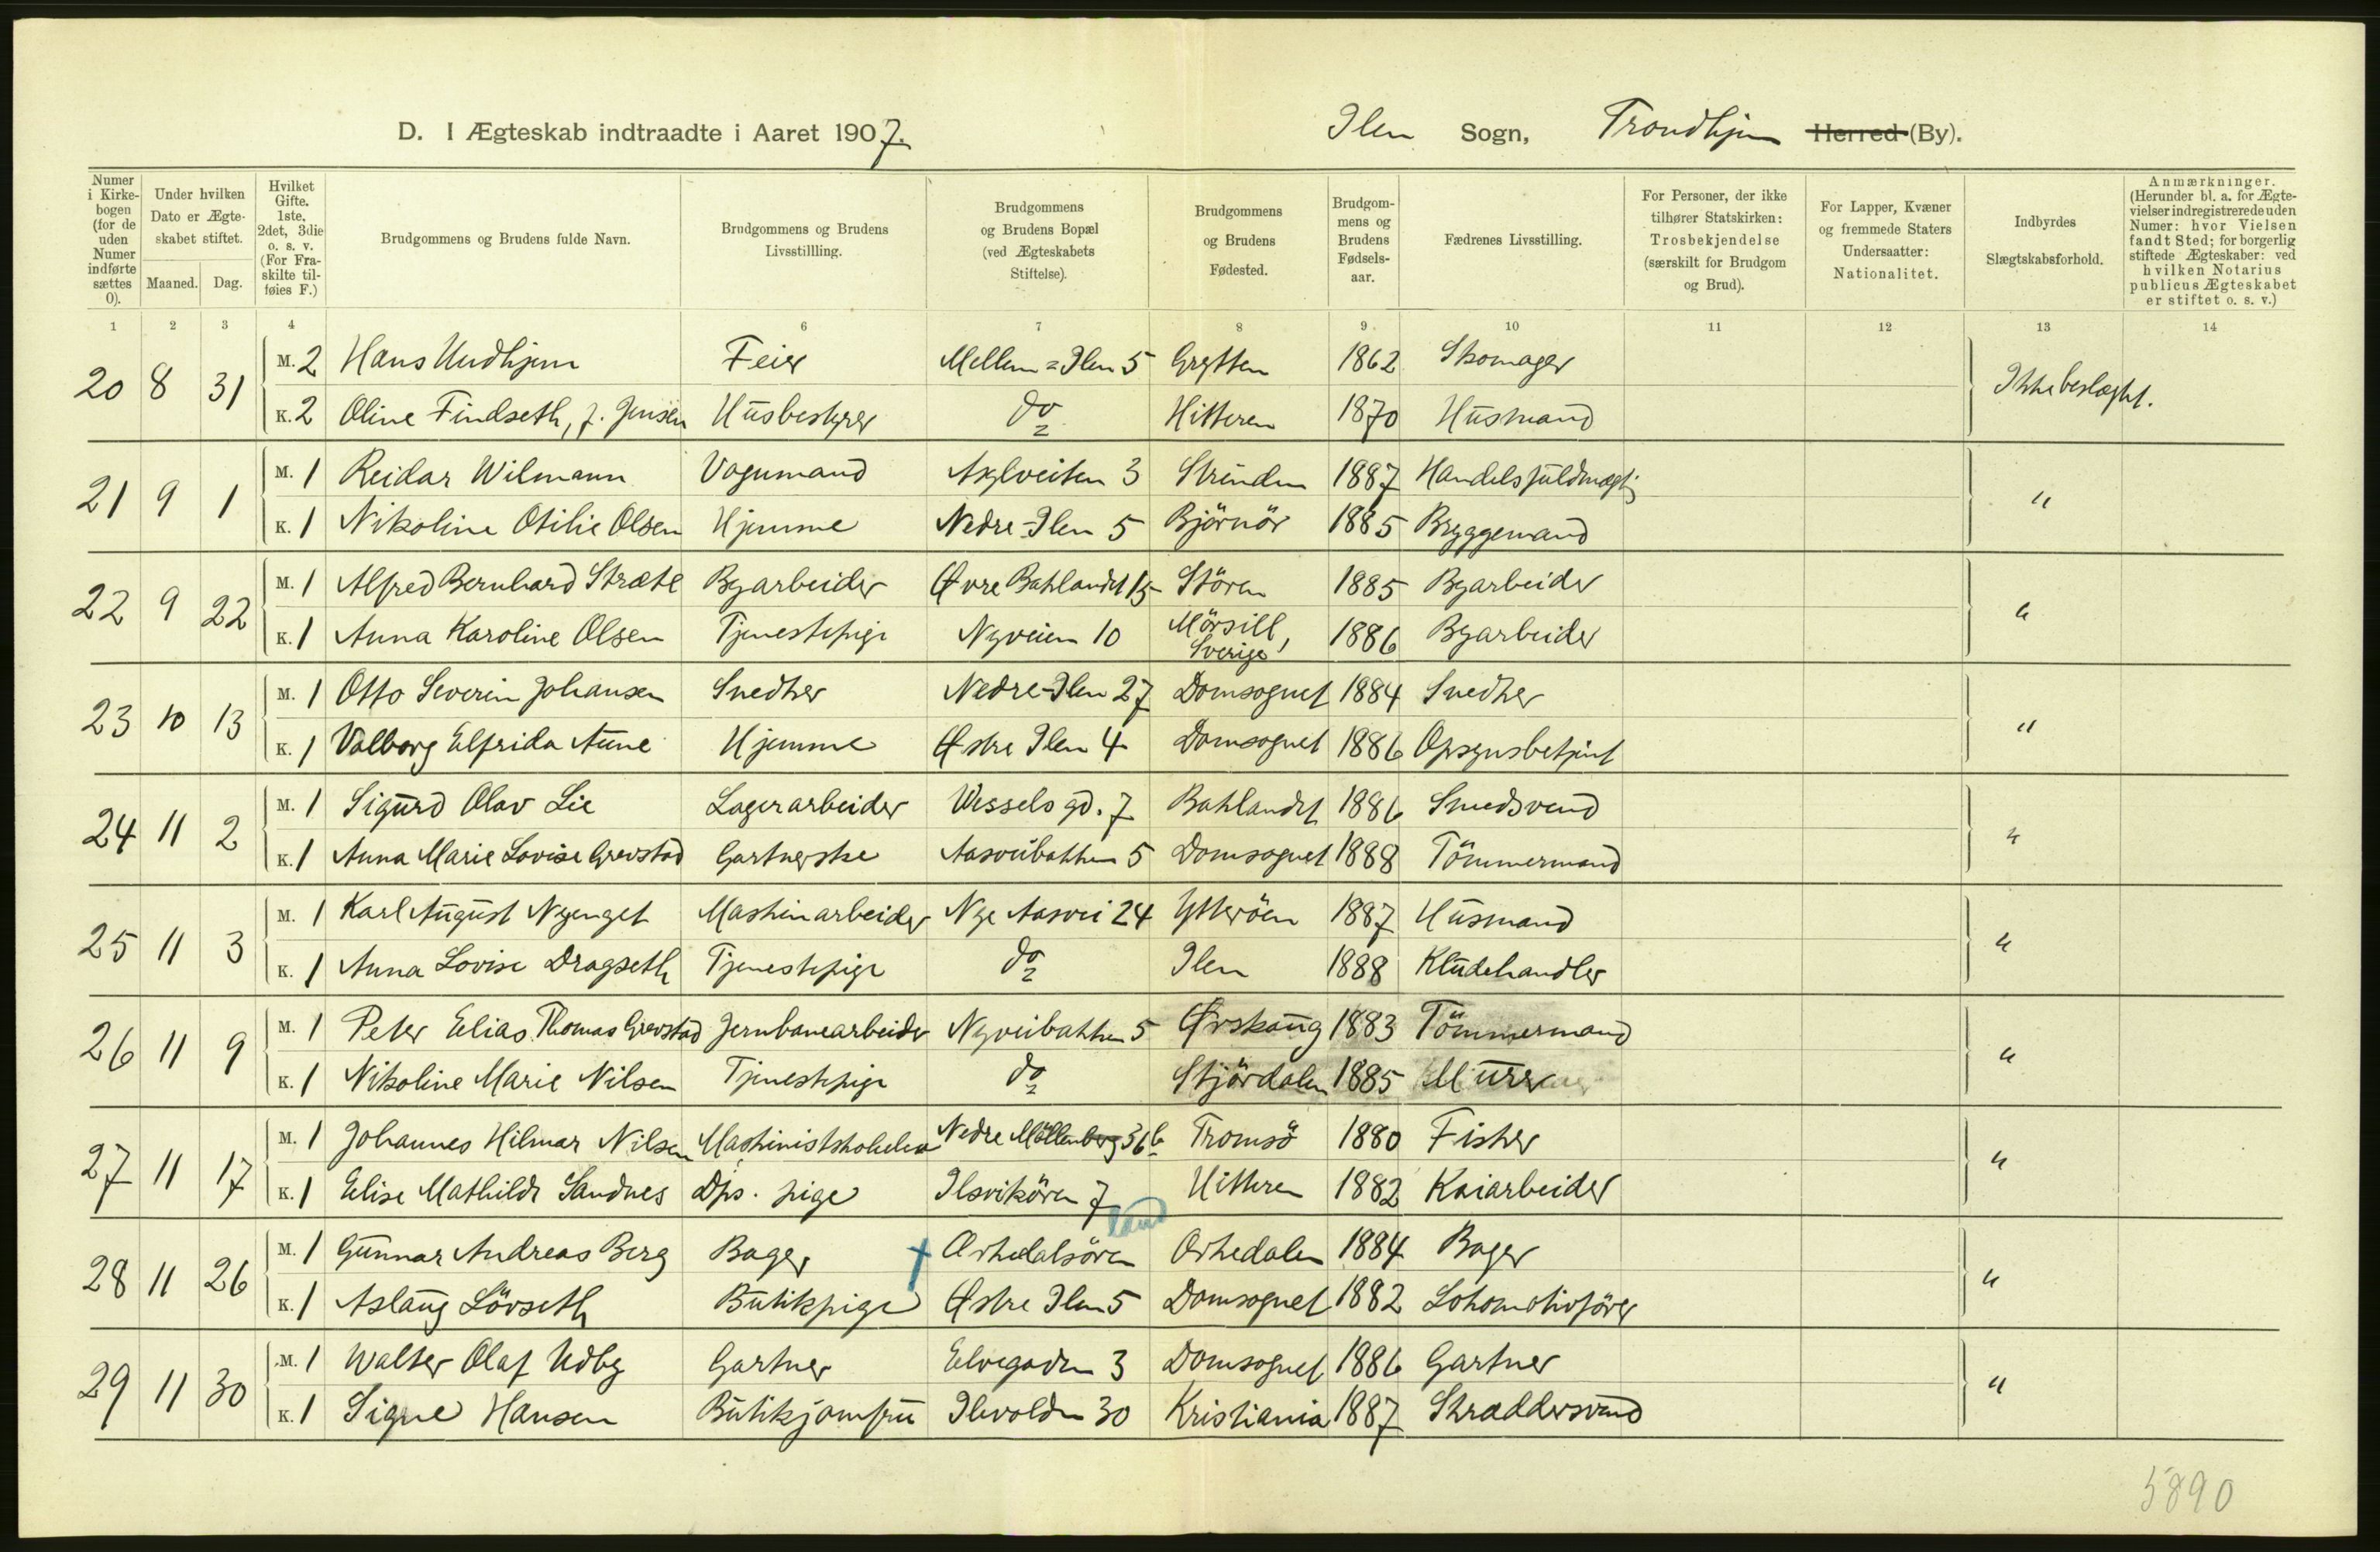 D. I Ægteskab indtraadte i Aaret 1907. Ilen Sogn, Trondhjem Herred (By).
Numer i Kirkebogen (for de uden Numer indførte sættes 0).
Under hvilken Dato er Ægteskabet stiftet.
Maaned. Dag.
Hvilket Gifte. 1ste, 2det, 3die o. s. v. (For Fraskilte tilføies F.)
Brudgommens og Brudens fulde Navn.
Brudgommens og Brudens Livsstillling.
Brudgommens og Brudens Bopæl (ved Ægteskabets Stiftelse).
Brudgommens og Brudens Fødested.
Brudgommens og Brudens Fødselsaar.
Fædrenes Livsstilling.
For Personer, der ikke tilhører Statskirken: Trosbekjendelse (særskilt for Brudgom og Brud).
For Lapper, Kvæner og fremmede Staters Undersaatter: Nationalitet.
Indbyrdes Slægtskabsforhold.
Anmærkninger. (Herunder bl. a. for Ægtevielser indregistrerede uden Numer: hvor Vielsen fandt Sted; for borgerlig stiftede Ægteskaber: ved hvilken Notarius publicus Ægteskabet er stiftet o. s. v.)
1 2 3 4 6 7 8 9 10 11 12 13 14
20 8 31 M. 2 Hans Undhjem Feier Mellem=Ilen 5 Grytten 1862 Skomager Ikke beslægtet.
K. 2 Oline Findseth, f. Jensen Husbestyrer do Hitteren 1870 Husmand
21 9 1 M. 1 Reidar Wilmann Vognmand Asylveiten 3 Strinden 1887 Handelsfuldmægtig "
K. 1 Nikoline Otilie Olsen Hjemme Nedre-Ilen 5 Björnör 1885 Bryggemand
22 9 22 M. 1 Alfred Bernhard Stræte Byarbeider Øvre Baklandet 15 Stören 1885 Byarbeider "
K. 1 Anna Karoline Olsen Tjenestepige Nyveien 10 Mörsill, Sverige 1886 Byarbeider
23 10 13 M. 1 Otto Severin Johansen Snedker Nedre-Ilen 27 Domsognet 1884 Snedker "
K. 1 Valborg Elfrida Aune Hjemme Østre Ilen 4 Domsognet 1886 Opsynsbetjent
24 11 2 M. 1 Sigurd Olav Lie Lagerarbeider Wessels gd. 7 Baklandet 1886 Smedsvend "
K. 1 Anna Marie Lovise Grevstad Gartnerske Aasveibakken 5 Domsognet 1888 Tömmermand
25 11 3 M. 1 Karl August Nyenget Maskinarbeider Nye Aasvei 24 Ytteröen 1887 Husmand "
K. 1 Anna Lovise Dragseth Tjenestepige do Ilen 1888 Kludehandler
26 11 9 M. 1 Peter Elias Thomas Grevstad Jernbanearbeider Nyveibakken 5 Ørskaug 1883 Tömmermand "
K. 1 Nikoline Marie Nilsen Tjenestepige do Stjördalen 1885 Murer
27 11 17 M. 1 Johannes Hilmar Nilsen Maskinistskoleelev Nedre Möllenberg 36b Tromsö 1880 Fisker "
K. 1 Elise Mathilde Sandnes Dps. pige Ilsvikören 7 Hitteren 1882 Kaiarbeider
land
28 11 26 M. 1 Gunnar Andreas Berg Bager † Orkedalsören Orkedalen 1884 Bager "
K. 1 Aslaug Lövseth Butikpige Østre Ilen 5 Domsognet 1882 Lokomotivförer
29 11 30 M. 1 Walter Olaf Udby Gartner Elvegaden 3 Domsognet 1886 Gartner "
K. 1 Signe Hansen Butikjomfru Ilevolden 30 Kristiania 1887 Skræddersvend
5890